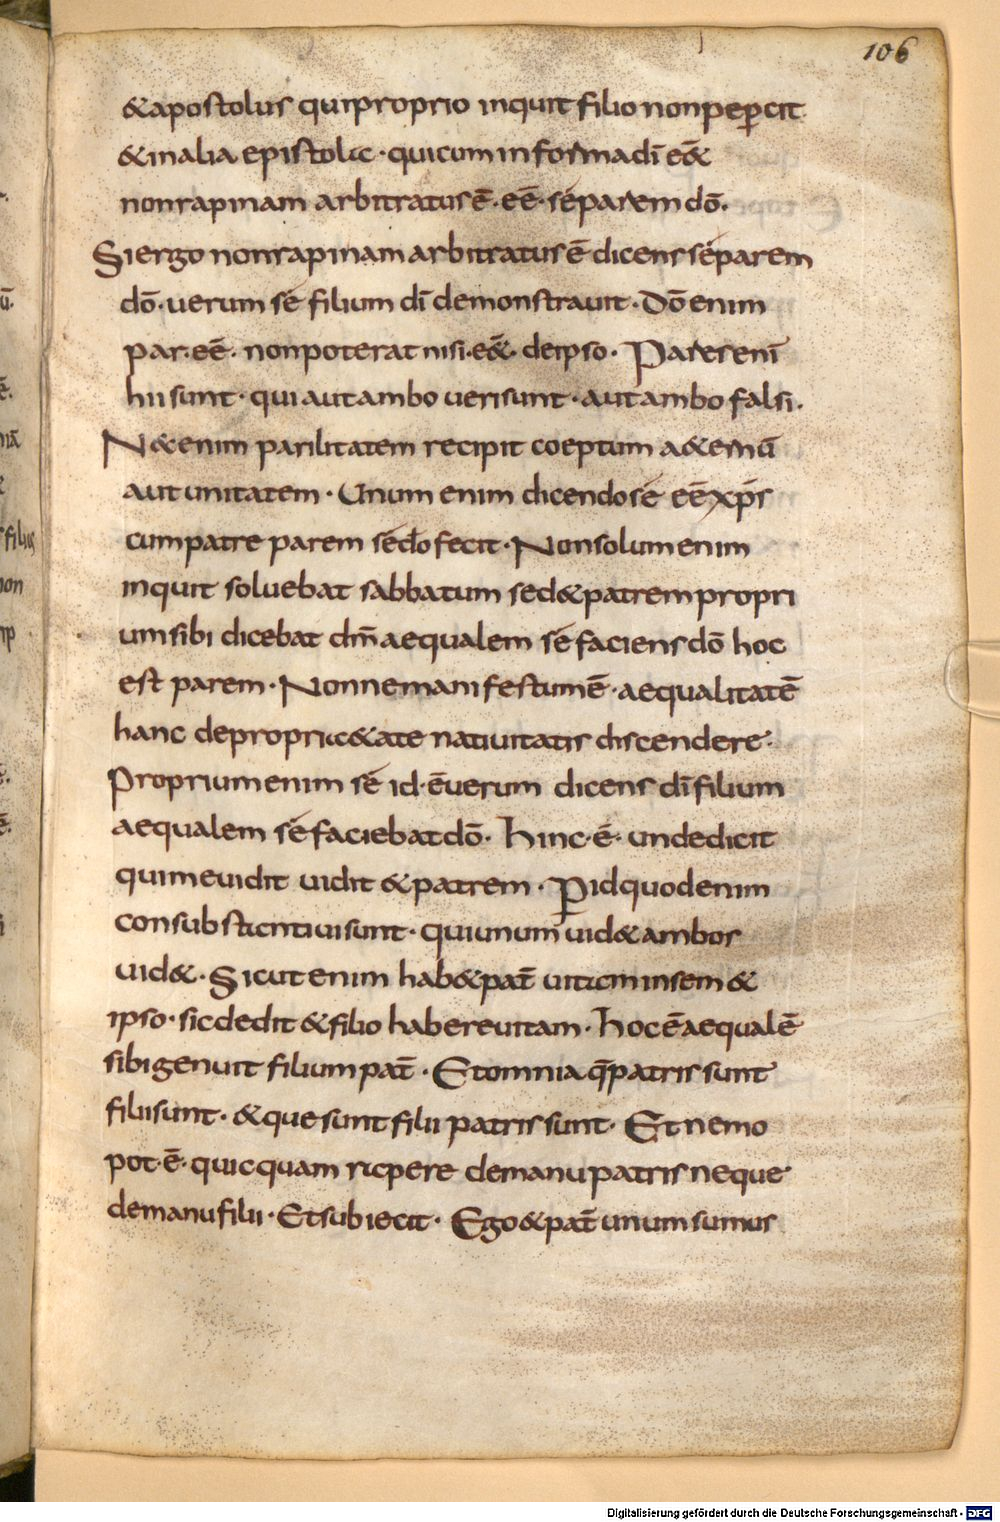 106
&apostolus qui proprio inquit filio non peꝑcit
& in alia epistola · qui cum in forma dī e&
non rapinam arbitratus ē · eē · se parem dō.
Si ergo non rapinam arbitratus ē dicens se parem
dō · uerum se filium dī demonstrauit · Dō enim
par · eē · non poterat nisi · e& · de ipso · Pater enī
hii sunt · qui aut ambo ueri sunt · aut ambo falsi ·
N& enim parilitatem recipit coeptum a&ernū
aut unitatem · Unum enim dicendo se eē xp̄s
cum patre parem se do fecit · Non solum enim
inquit soluebat sabbatum sed & patrem propri
um sibi dicebat dm̄ aequalem se faciens dō hoc
est parem · Nonne manifestum ē · aequalitatē
hanc de propri&ate natiuitatis discendere ·
Proprium enim se id · ē uerum dicens dī filium
aequalem se faciebat dō · Hinc · ē · unde dicit
qui me uidit uidit & patrem · Ꝓ id quod enim
consubstantiui sunt · qui unum uid& ambos
uid& · Sicut enim hab& pat̄ uitam in sem&
ipso · sic dedit & filio habere uitam · Hoc ē aequalē
sibi genuit filium pat̄ · Et omnia q̄ patris sunt
filii sunt · & que sunt filii patris sunt · Et nemo
pot · ē · quicquam rapere de manu patris neque
de manu filii · Et subiecit · Ego & pat̄ unum sumus
Digitalisierung gefördert durch die Deutsche Forschungsgemeinschaft - DFG